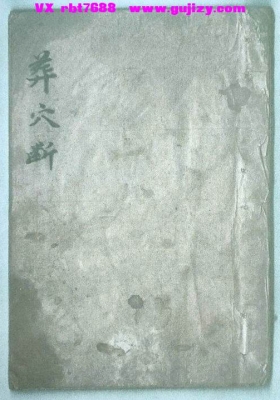 VX rbt7688 www.gujizy.com
葬穴断